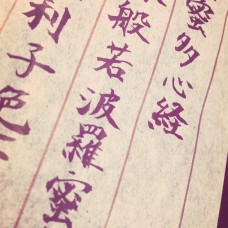 蜜多心経
般若波羅蜜
利子色